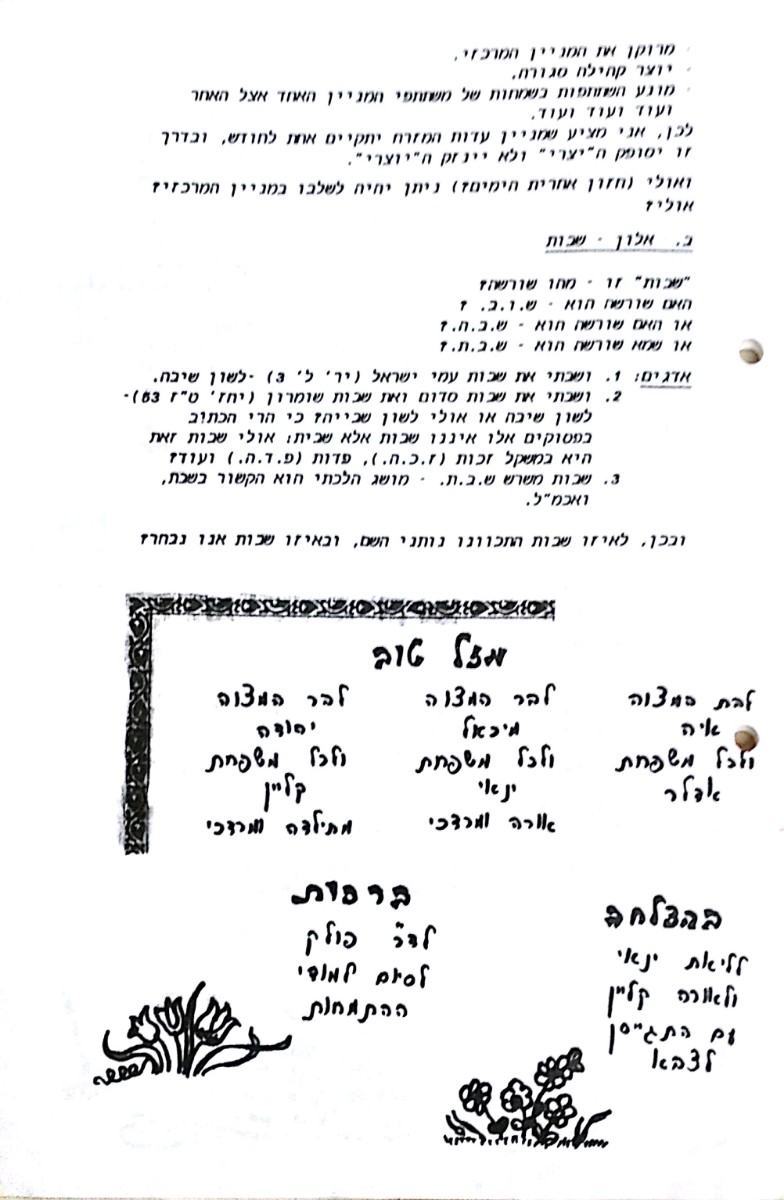 - מרוקן את המניין המרכזי.
- יוצר קהילה סגורה.
- מונע השתתפות בשמחות של משתתפי המניין האחד אצל האחר
ועוד ועוד ועוד.
לכן, אני מציע שמניין עדות המזרח יתקיים אחת לחודש, ובדרך
זו יסופק ה"יצרי" ולא יינזק ה"יוצרי".
ואולי (חזון אחרית הימים?) ניתן יהיה לשלבו במניין המרכזי?
אולי?
ב. אלון - שבות
"שבות" זו - מהו שורשה?
האם שורשה הוא - ש.ו.ב. ?
או האם שורשה הוא - ש.ב.ה.?
או שמא שורשה הוא - ש.ב.ת.?
אדגים: 1. ושבתי את שבות עמי ישראל (יר' ל' 3) -לשון שיבה.
2. ושבתי את שבות סדום ואת שבות שומרון (יחז' ט"ז 53)-
לשון שיבה או אולי לשון שבייה? כי הרי הכתוב
בפסוקים אלו איננו שבות אלא שבית; אולי שבות זאת
היא במשקל זכות (ז.כ.ה.), פדות (פ.ד.ה.) ועוד?
3. שבות משרש ש.ב.ת. - מושג הלכתי הוא הקשור בשבת,
ואכמ"ל.
ובכן, לאיזו שבות התכוונו נותני השם, ובאיזו שבות אנו נבחר?
מזל טוב
לבת המצוה
איה
ולכל משפחת
אדלר
לבר המצוה
מיכאל
ולכל משפחת
ינאי
אורה ומרדכי
לבר המצוה
יהודה
ולכל משפחת
קליין
מתילדה ומרדכי
ברכות
לדר' פולק
לסיום למודי
ההתמחות
בהצלחה
לליאת ינאי
ולאורה קליין
עם התגייסן
לצבא